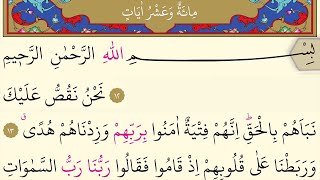 مِائَةٌ وَعَشْرُ اٰيَاتٍ
بِسْمِ اللّٰهِ الرَّحْمٰنِ الرَّحٖيمِ
﴿١٢﴾ نَحْنُ نَقُصُّ عَلَيْكَ
نَبَاَهُمْ بِالْحَقِّۜ اِنَّهُمْ فِتْيَةٌ اٰمَنُوا بِرَبِّهِمْ وَزِدْنَاهُمْ هُدًىۗ ﴿١٣﴾
وَرَبَطْنَا عَلٰى قُلُوبِهِمْ اِذْ قَامُوا فَقَالُوا رَبُّنَا رَبُّ السَّمٰوَاتِ